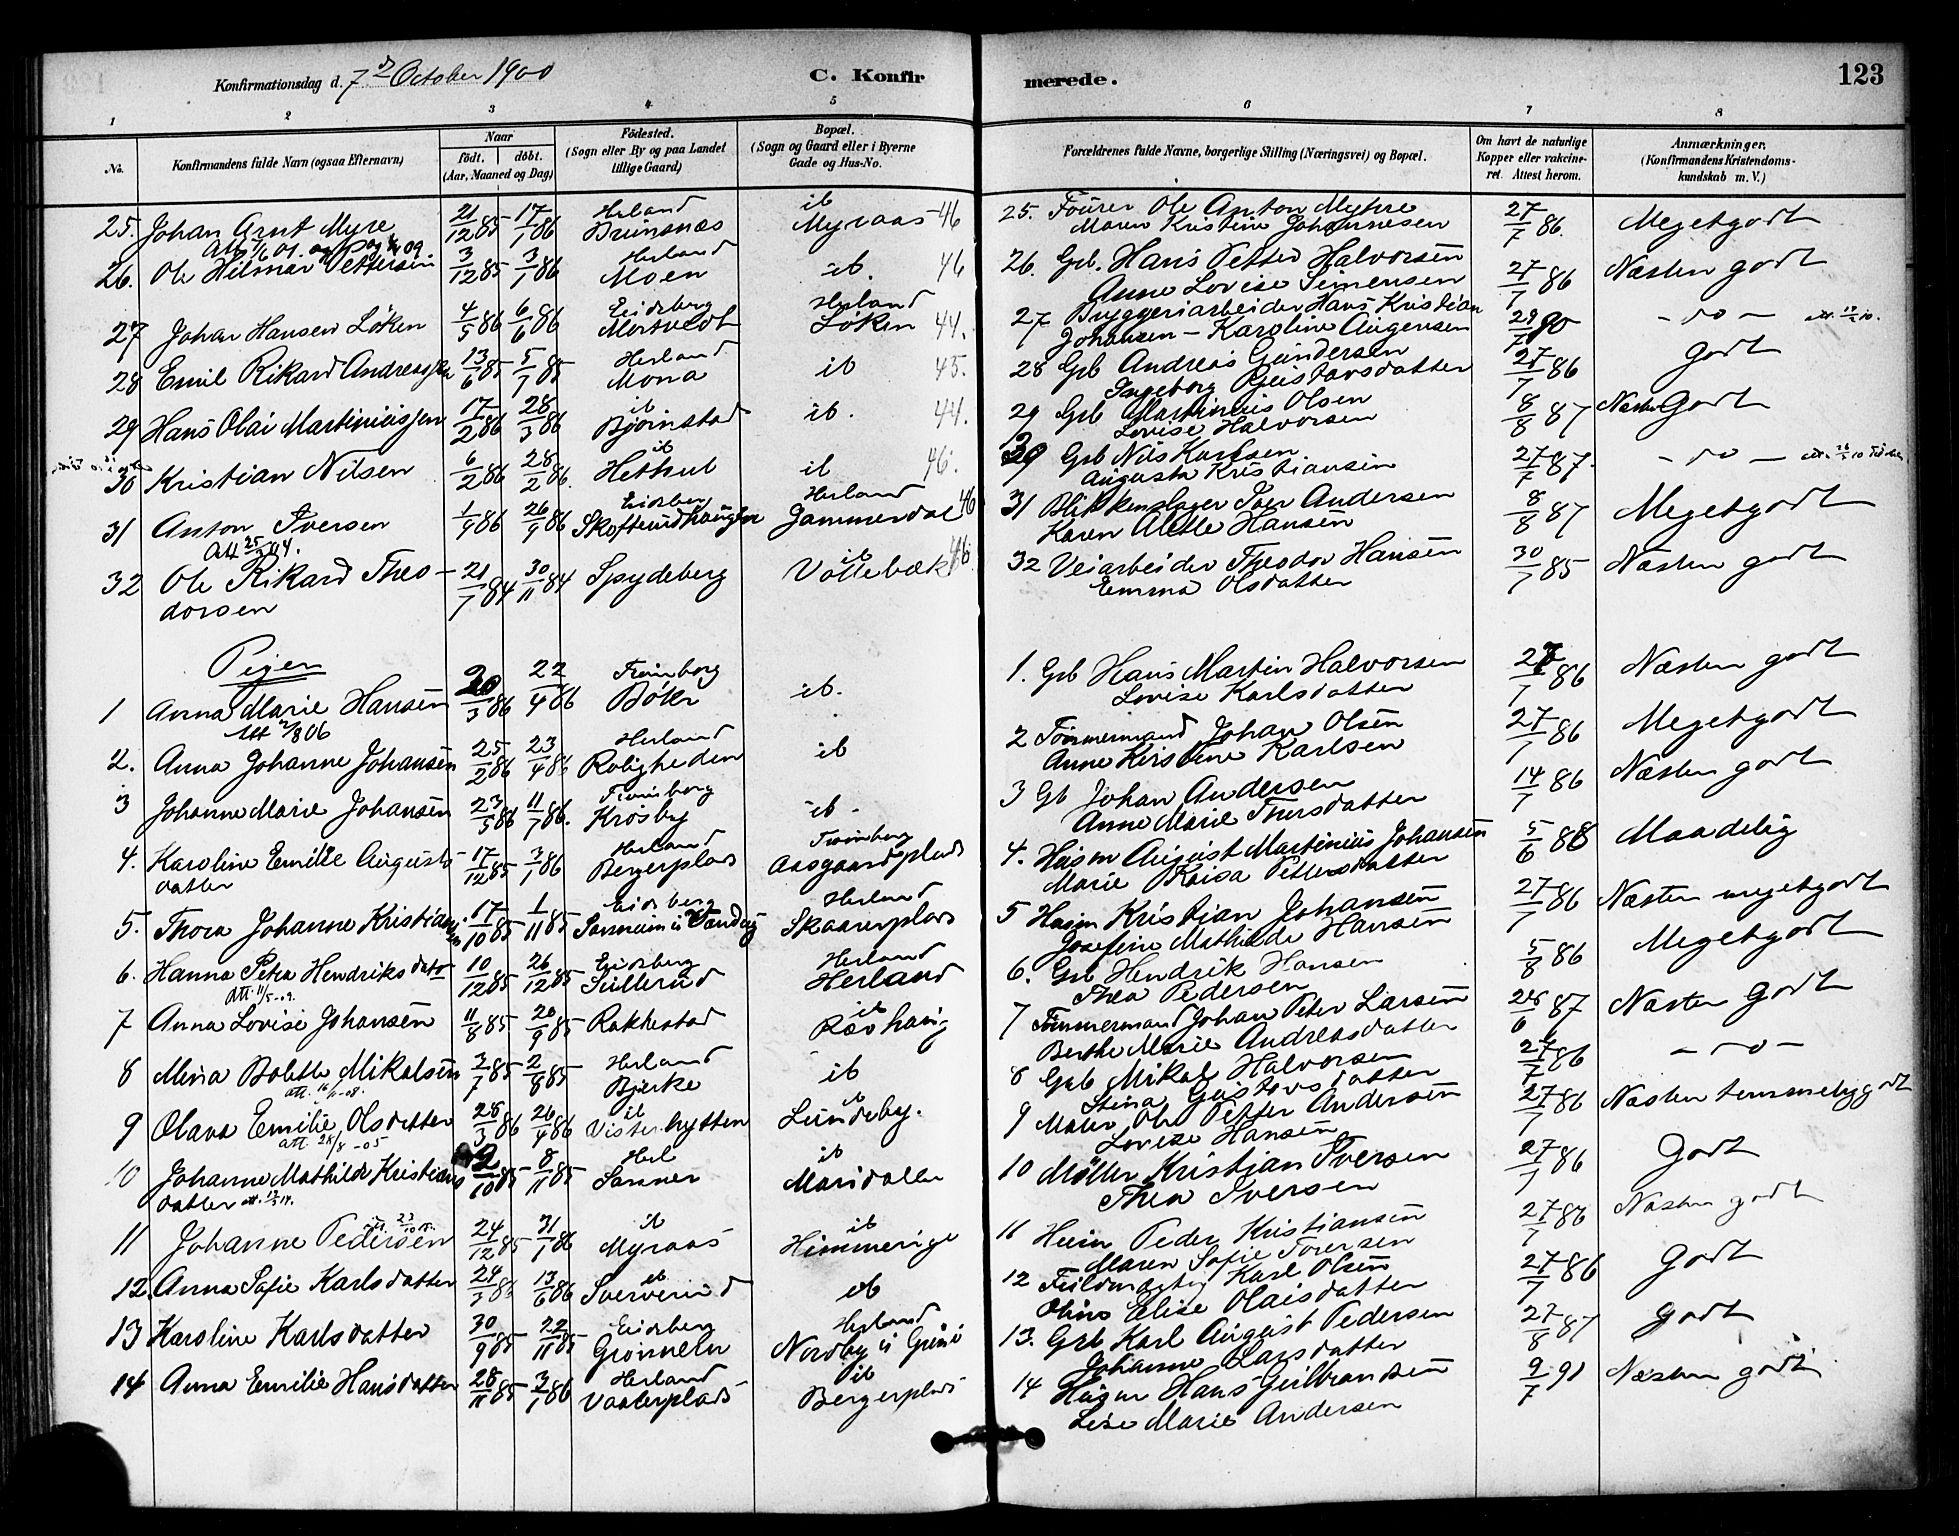 Konfirmationsdag d. 7de October 1900
C. Konfirmerede.
123
1 2 3 4 5 6 7 8
No.
Konfirmandens fulde Navn (ogsaa Efternavn)
Naar
födt. döbt.
(Aar, Maaned og Dag)
Födested.
(Sogn eller By og paa Landet
tillige Gaard)
Bopæl.
(Sogn og Gaard eller i Byerne
Gade og Hus-No.
Forældrenes fulde Navne, borgerlige Stilling (Næringsvei) og Bopæl.
Om havt de naturlige
Kopper eller vakcine-
ret. Attest herom.
Anmærkninger.
(Konfirmandens Kristendoms-
kundskab m. V.)
25. Johan Arnt Myre 21/12 85 17/1 86 Herland Brunsnæs ib Myraas 46
25. Fourer Ole Anton Myhre
Maren Kristine Johannesen 27/7 86. Megetgodt
26. Ole Hilmar Pettersen 3/12 85 3/1 86 Herland Moen ib. 46
26. Grb. Hans Petter Halvorsen
Anne Lovise Simensen 27/7 86 Næsten godt
27 Johan Hansen Løken 4/5 86 6/6 86 Eidsberg Mortvedt Herland Løken 44.
27 Bryggeriarbeider Hans Kristian
Johansen - Karoline Augensen 29/7 90 - do -
28 Emil Rikard Andreassen 13/6 85 5/7 85 Herland Mona ib 45.
28 Grb Andreas Gundersen
Ingeborg Gustavsdatter 27/7 86 Godt
29 Hans Olai Martiniussen 17/2 86 28/3 86 ib Bjørnstad ib. 44.
29 Grb Martinius Olsen
Lovise Halvorsen 8/8 87 Næsten Godt
30 Kristian Nilsen 6/2 86 28/2 86. ib ib 46.
Grb Nils Karlsen
Augusta Kristiansen 27/7 87. - do -
31 Anton Iversen 1/9 86 26/9 86 Eidsberg Herland Gammerdal 46
Att 25/
31 Blikkenslager Iver Andersen
Karen Alette Hansen 8/8 87 Megetgodt
32 Ole Rikard Theo-
dorsen 21/7 84 30/11 84 Spydeberg ib Vollebæk 46
32 Veiarbeider Theodor Hansen
Emma Olsdatter 30/7 85 Næsten godt
Piger
1 Anna Marie Hansen 20/3 86 22/4 86 Trømborg Böler ib.
Att 2/8 06
1. Grb Hans Martin Halvorsen
Lovise Karlsdatter 27/7 86 Næsten godt
2. Anna Johanne Johansen 25/2 86 23/4 86 Herland Roligheden ib
2 Tømmermand Johan Olsen
Anne Kirstine Karlsen 27/7 86 Megetgodt
3 Johanne Marie Johansen 23/5 86 11/7 86. Trømborg Krosby ib.
3 Gb Johan Andersen
Anne Marie Thorsdatter 14/7 86 Næsten godt
4. Karoline Emilie August-
datter 17/12 85 3/1 86 Herland Bergerplads Trømborg Aasgaardsplads
4. Husm August Martinius Johansen
Marie Kaisa Pettersdatter 5/6 88 Maadelig
5. Thora Johanne Kristiansen 17/10 85 1/11 85 Eidsberg Herland Skaarerplads
5 Husm Kristian Johansen
Josefine Mathilde Hansen 27/7 86 Næsten megetgodt
6. Hanna Petra Hendriksdatr 10/12 85 26/12 85 Eidsberg Sulerud Herland Herland
Att. 11/5-09.
6. Grb Hendrik Hansen
Thea Pedersen 5/8 86 Megetgodt
7 Anna Lovise Johansen 11/8 85 20/9 85 Rakkestad ib Rævhaug
7 Tømmermand Johan Peter Larsen
Berthe Marie Andreasdatter 28/6 87 Næsten Godt
8 Mina Bolette Mikalsen 3/7 85 2/8 85 Herland Bjerke ib
8 Grb Mikal Halvorsen
Stina Gustavsdatter 27/7 86 - do -
9 Olava Emilie Olsdatter 28/3 86 26/4 86 ib Visterhytten ib Lundeby.
Att. 28/8-05
9 Maler Ole Petter Andersen
Lovise Hansen 27/7 86 Næsten temmeliggodt
10 Johanne Mathilde Kristians-
datter 2/10 85 8/11 85 Herl Sanner ib Maridalen
10 Møller Kristian Iversen
Thea Iversen 27/7 86 Godt
11 Johanne Pedersen 24/12 85 31/1 86 ib Myraas ib Himmerige
11 Husm Peder Kristiansen
Maren Sofie Torersen 27/7 86 Næsten godt
12. Anna Sofie Karlsdatter 24/3 86 13/6 86 ib Sververud ib
12 Fuldmægtig Karl Olsen
Elise Olaisdatter 27/7 86 Godt
13 Karoline Karlsdatter 30/9 85 22/11 85 Eidsberg Grønneln Herland Nordby
13. Grb Karl August Pedersen
Johanne Larsdatter 27/8 87 Godt
14 Anna Emilie Hansdatter 28/11 85 3/1 86 Herland Vaalerplads ib Bergerplads
14 Husm Hans Gulbrandsen
Lise Marie Andersen 9/7 91 Næsten godt